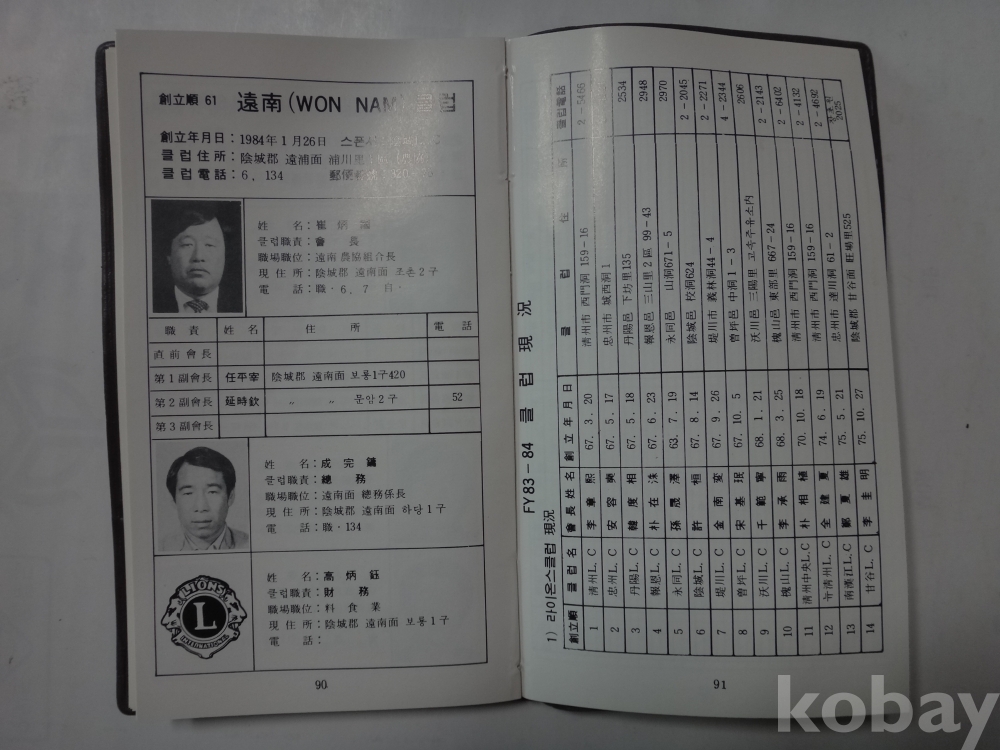 創立順 61 遠南(WON NAM) 클럽
創立年月日：1984年 1月26日 스폰서
클럽住所：陰城郡 遠浦面
클럽電話：6, 134 郵便
姓 名：崔炳
클럽職責：會 長
職場職位：遠南 農協組合長
現 住所：陰城郡 遠南面 조촌2구
電 話：職·6, 7 自·
職責 姓名 住所 電話
直前會長
第1副會長 任平宰 陰城郡 遠南面 보룡1구420
第2副會長 延時欽 〃 〃 문암2구 52
第3副會長
姓 名：成完鏞
클럽職責：總 務
職場職位：遠南面 總務係長
現 住所：陰城郡 遠南面 하당1구
電 話：職·134
LIONS
L
INTERNATIONAL
姓 名：高炳鈺
클럽職責：財 務
職場職位：料食業
現 住所：陰城郡 遠南面 보룡1구
電 話：
90
FY83－84 클럽 現況
1) 라이온스클럽 現況
創立順 클럽名 會長姓名 創立年月日 클럽住所 클럽電話
1 淸州L.C 李章熙 67. 3. 20 淸州市 西門洞 159-16 2-5466
2 忠州L.C 安容奭 67. 5. 17 忠州市 城西洞 1
3 丹陽L.C 韓度相 67. 5. 18 丹陽邑 下坊里135 2534
4 報恩L.C 朴在洙 67. 6. 23 報恩邑 三山里2區 99-43 2948
5 永同L.C 孫晟澤 63. 7. 19 永同邑 山洞671-5 2970
6 陰城L.C 許相 67. 8. 14 陰城邑 校洞624 2-2045
7 堤川L.C 金南変 67. 9. 26 堤川市 義林洞44-4 2-2271
8 曾坪L.C 宋基珉 67. 10. 5 曾坪邑 中洞1-3 4-2344
9 沃川L.C 千範寧 68. 1. 21 沃川邑 三陽里 고속주유소內 2606
10 槐山L.C 李承雨 68. 3. 25 槐山邑 東部里 667-24 2-2143
11 淸州中央L.C 朴相植 70. 10. 18 淸州市 西門洞 159-16 2-6402
12 뉴淸州L.C 全建夏 74. 6. 19 淸州市 西門洞 159-16 2-4132
13 南漢江L.C 鄭夏雄 75. 5. 21 忠州市 達川洞 61-2 2-4692
14 甘谷L.C 李圭明 75. 10. 27 陰城郡 甘谷面 旺場里525 장호원 2025
91
kobay